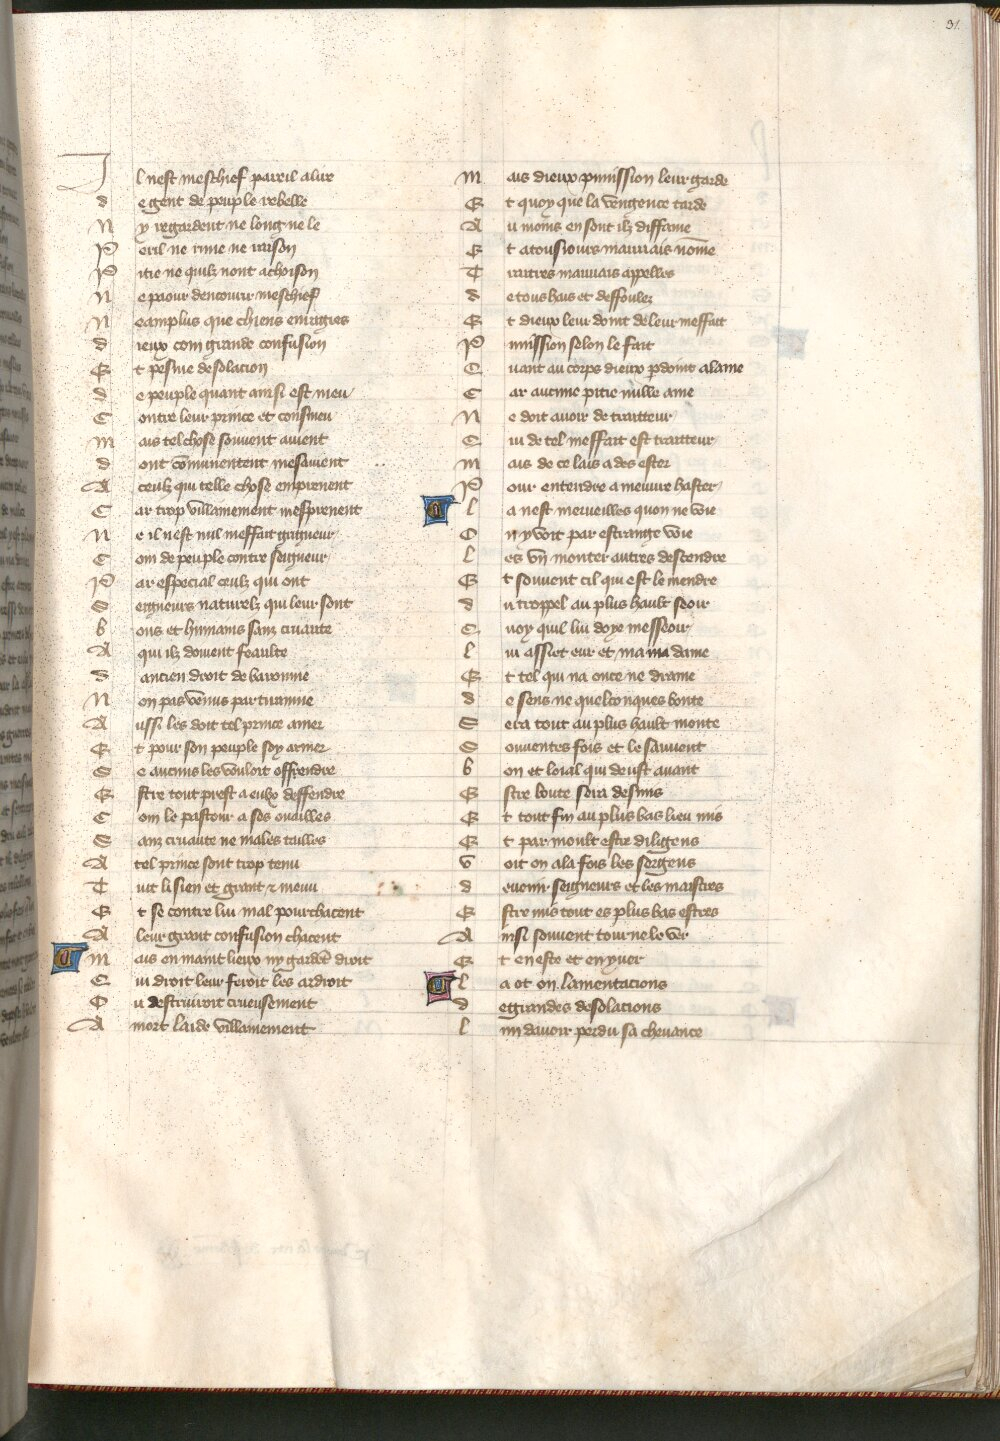 31
Il nest meschief pareil a lire
de gent de peuple rebelle
Ny regardent ne long ne le
Peril ne rime ne raison
Pitie ne quilz nont achoison
Ne paour dencourir meschief
Neamplus que chiens enragies
dieux com grande confusion
Et pesme desolacion
de peuple quant ainsi est meu
Contre leur prince et consmeu
mais tel chose souvent avient
dont cōmunentent mesavient
A ceulx qui telle chose emprenent
Car trop villainement mesprenent
Ne il nest nul meffait grigneur
Com de peuple contre seigneur
Par especial ceulx qui ont
Seigneurs naturelz qui leur sont
bons et humains sanz cruaute
A qui ilz doivent feaulte
dancien droit de baronnie
Non pas venus par tirannie
Aussi les doit tel prince amer
Et pour son peuple soy armer
Se aucuns les vouloit offendre
Estre tout prest a eulx deffendre
Com le pastour a ses ouailles
Sanz cruaute ne males tailles
A tel prince sont trop tenu
Tuit li sien et grant & menu
Et se contre lui mal pourchacent
A leur grant confusion chacent
mais en maint lieux ny gardēt droit
Cui droit leur feroit les ardroit
Ou destruiroit crueusement
A mort laide villainement
mais dieux punission leur garde
Et quoy que la vengence tarde
Au moins en sont ilz diffame
Et a tousiours mauvais nōme
Traitres mauvais appelles
de tous hais et deffoulez
Et dieux leur doint de leur meffait
Punission selon le fait
Quant au corps dieux pdoint a lame
Car aucune pitie nulle ame
Ne doit avoir de traitteur
Cui de tel meffait est traitteur
mais de ce lais a des ester
Pour entendre a meuvre haster
La nest merveilles quon ne voie
On y voit par estrange voie
Les vn monter autres descendre
Et souvent cil qui est le mendre
du troppel au plus hault seoir
Quoy quil lui doye messeoir
Lui assiet eur et ma ma dame
Et tel qui na once ne drame
de sens ne quelconques bonte
Sera tout au plus hault monte
Souventes fois et le sauvent
bon et loial qui deust avant
Estre boute sera desmis
Et tout fin au plus bas lieu mis
Et par moult estre diligens
voit on a la fois les sergens
devenir seigneurs et les maistres
Estre mis tout es plus bas estres
Ainsi souvent tourne le ver
Et en este et en yver
La ot on lamentacions
de grandes desolacions
Lun davoir perdu sa chevance